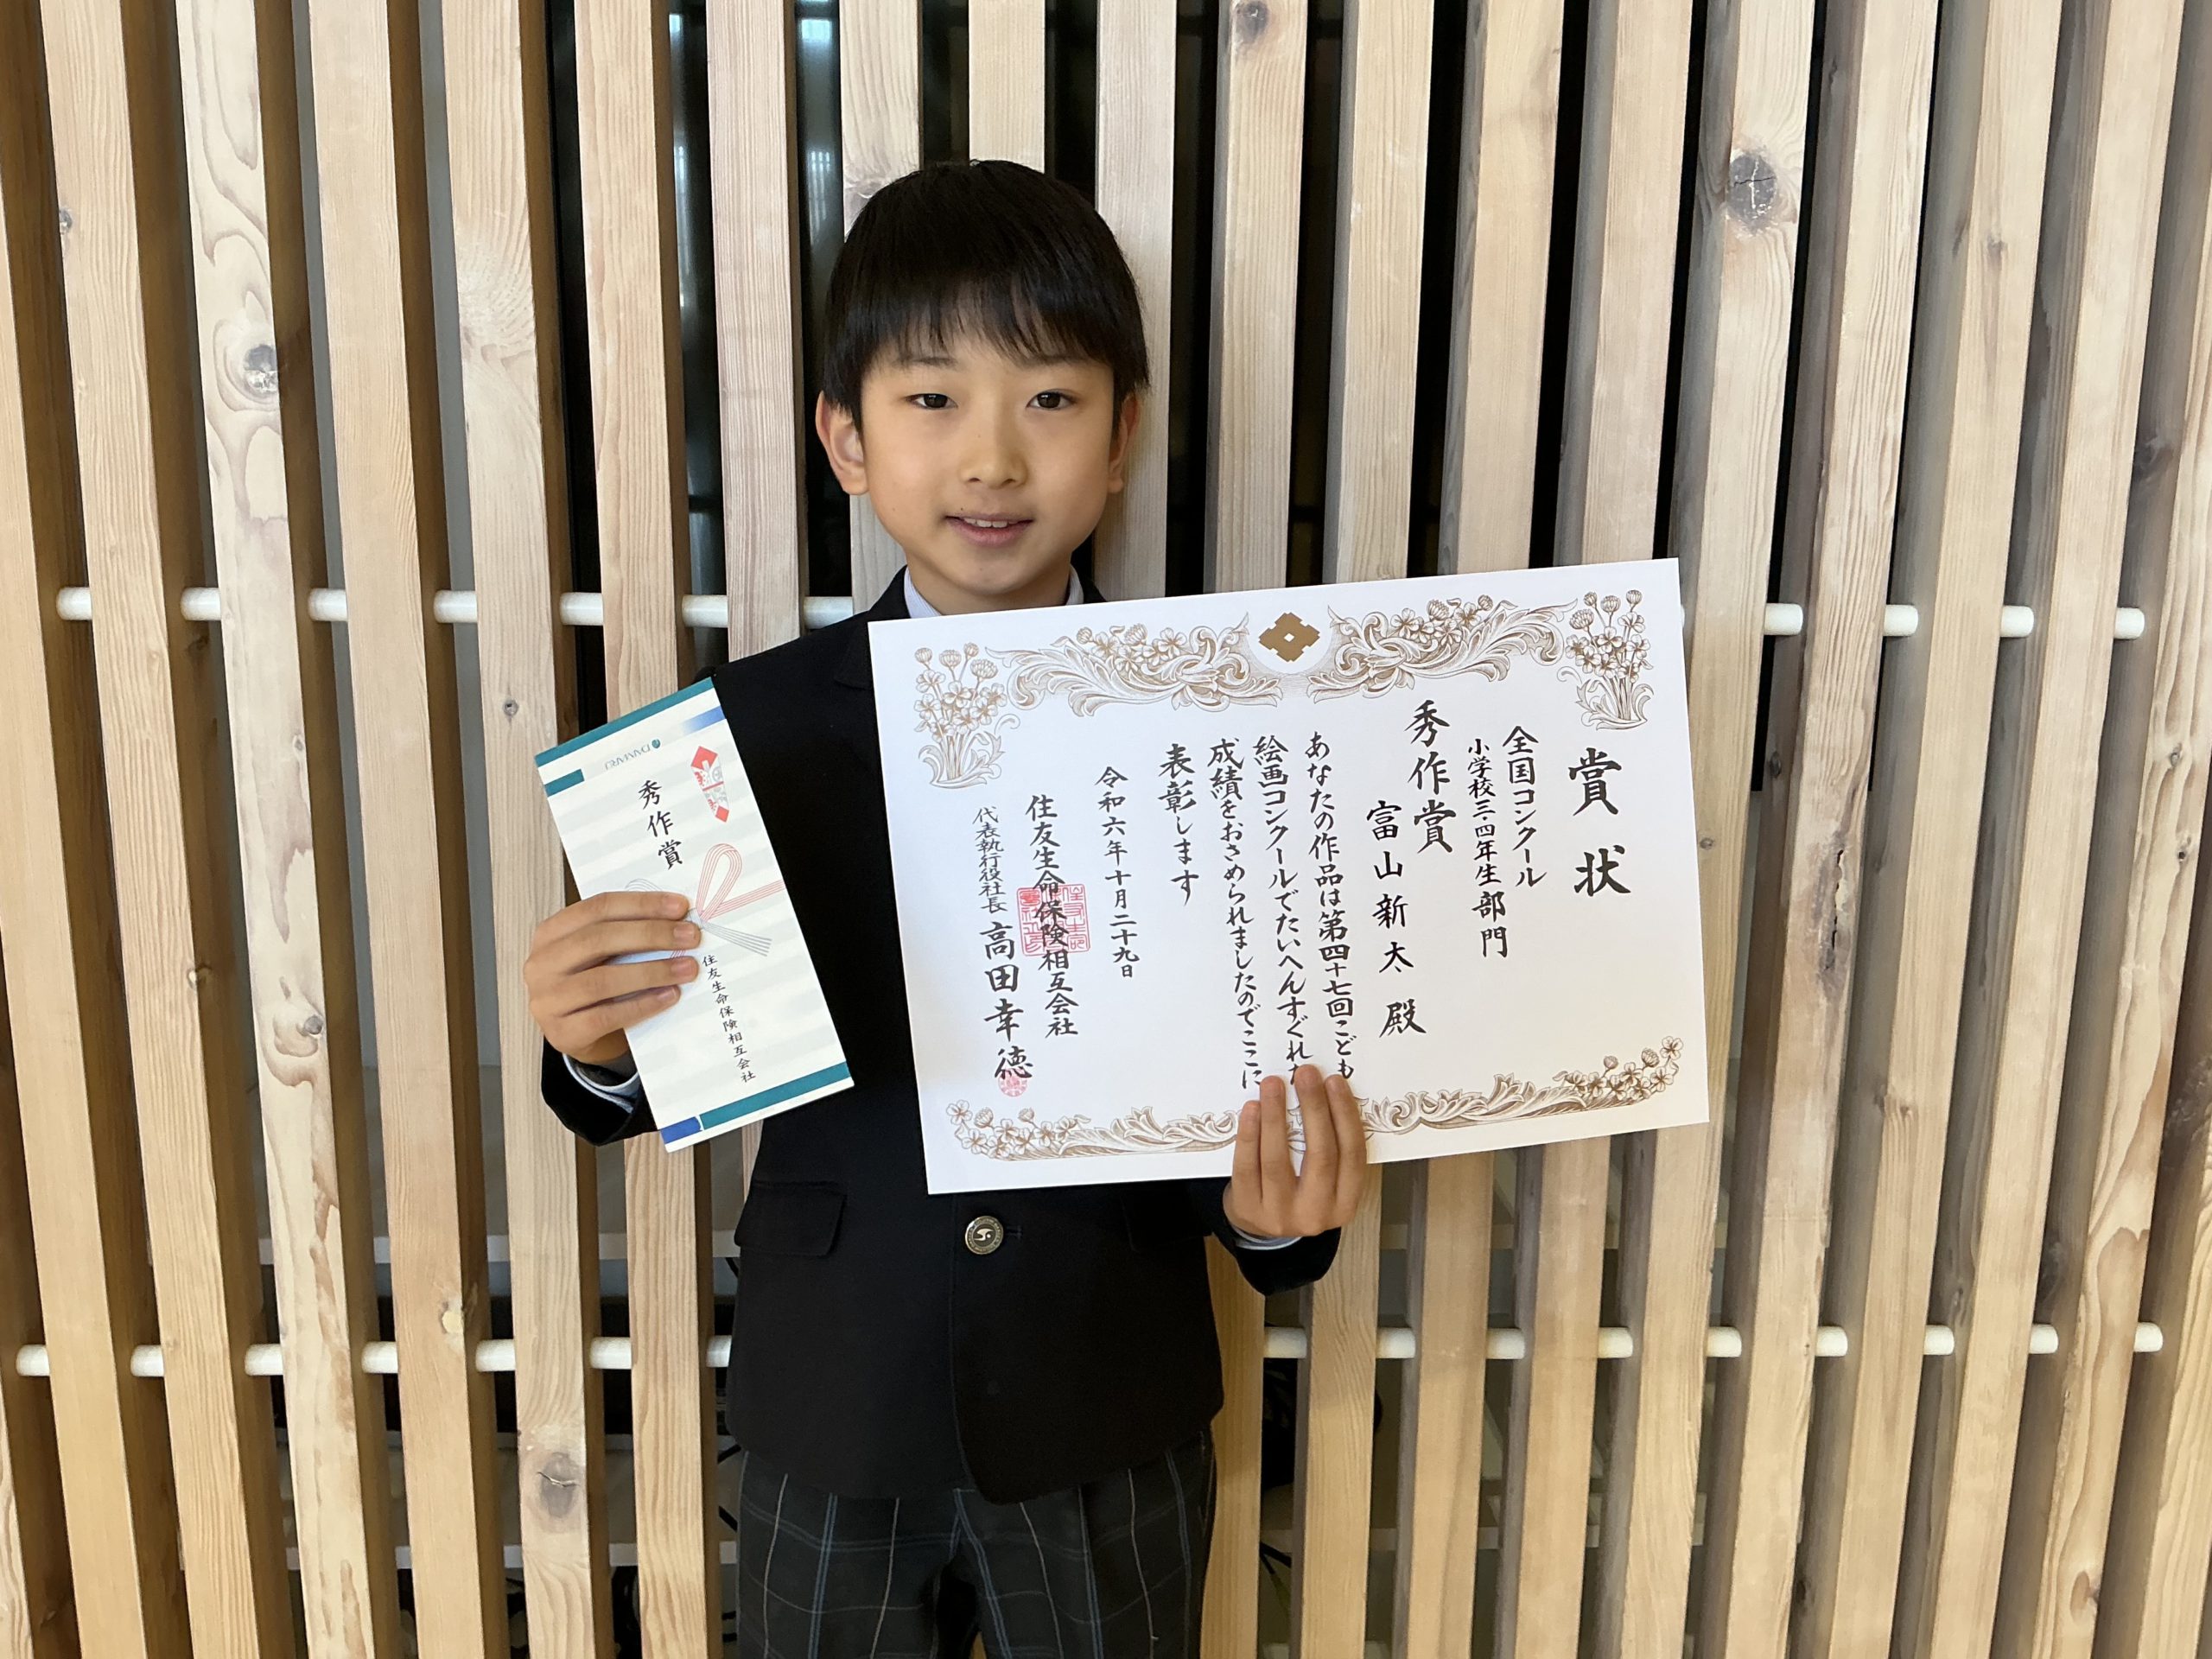 賞状
全国コンクール
小学校三・四年生部門
秀作賞
富山新大 殿
あなたの作品は第四十七回こども
絵画コンクールでたいへんすぐれた
成績をおさめられましたのでここに
表彰します
令和六年十月二十九日
住友生命保険相互会社
代表執行役社長 高田幸徳
DAIMARU
秀作賞
住友生命保険相互会社